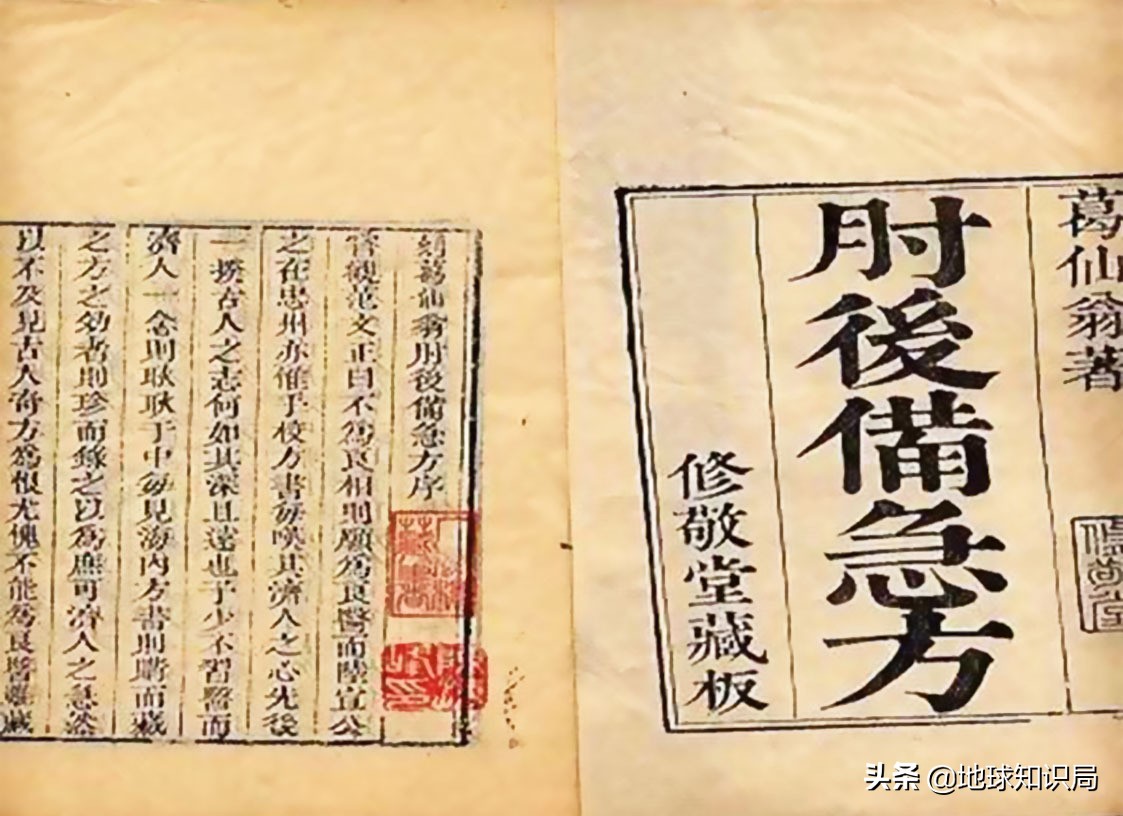 葛仙翁著
肘後備急方
修敬堂藏板
刻葛仙翁肘後備急方序
嘗觀范文正曰不爲良相則願爲良醫而陸宣公
之在忠州亦惟手校方書每嘆其濟人之心先後
一揆古人之志何如其深且遠也予少不習醫而
濟人一念則耿耿于中每見海內方書則購而藏
之方之効者則珍而錄之以爲庶可濟人之急然
以不及見古人奇方爲恨尤愧不能爲良醫雖藏
头条 @地球知识局